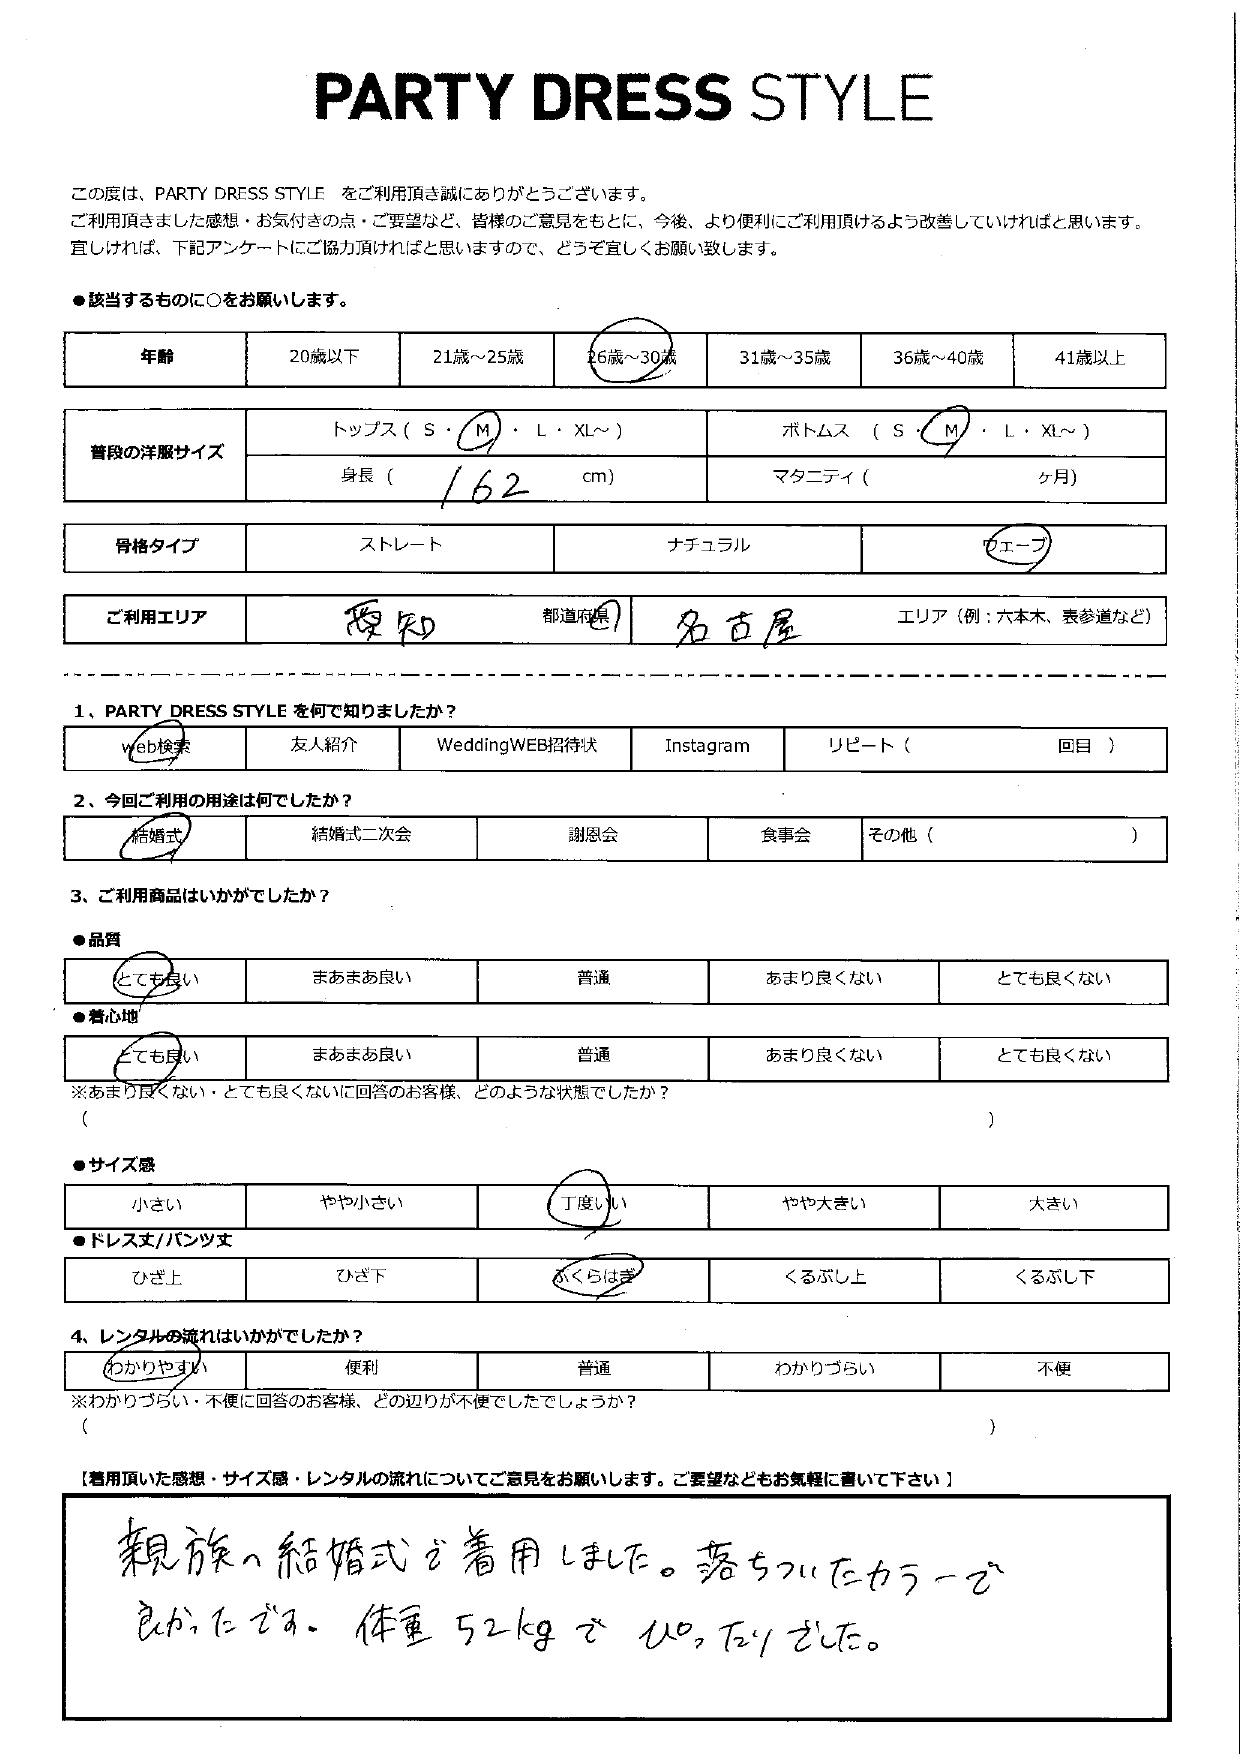 PARTY DRESS STYLE
この度は、PARTY DRESS STYLE をご利用頂き誠にありがとうございます。
ご利用頂きました感想・お気付きの点・ご要望など、皆様のご意見をもとに、今後、より便利にご利用頂けるよう改善していければと思います。
宜しければ、下記アンケートにご協力頂ければと思いますので、どうぞ宜しくお願い致します。
●該当するものに○をお願いします。
年齢 20歳以下 21歳～25歳 26歳～30歳 31歳～35歳 36歳～40歳 41歳以上
普段の洋服サイズ トップス ( S ・ M ・ L ・ XL～ ) ボトムス ( S ・ M ・ L ・ XL～ )
身長 ( 162 cm) マタニティ ( ヶ月)
骨格タイプ ストレート ナチュラル ウェーブ
ご利用エリア 愛知 都道府県 名古屋 エリア（例：六本木、表参道など）
1、PARTY DRESS STYLE を何で知りましたか？
web検索 友人紹介 WeddingWEB招待状 Instagram リピート ( 回目 )
2、今回ご利用の用途は何でしたか？
結婚式 結婚式二次会 謝恩会 食事会 その他 ( )
3、ご利用商品はいかがでしたか？
●品質
とても良い まあまあ良い 普通 あまり良くない とても良くない
●着心地
とても良い まあまあ良い 普通 あまり良くない とても良くない
※あまり良くない・とても良くないに回答のお客様、どのような状態でしたか？
( )
●サイズ感
小さい やや小さい 丁度いい やや大きい 大きい
●ドレス丈/パンツ丈
ひざ上 ひざ下 ふくらはぎ くるぶし上 くるぶし下
4、レンタルの流れはいかがでしたか？
わかりやすい 便利 普通 わかりづらい 不便
※わかりづらい・不便に回答のお客様、どの辺りが不便でしたでしょうか？
( )
【着用頂いた感想・サイズ感・レンタルの流れについてご意見をお願いします。ご要望などもお気軽に書いて下さい】
親族の結婚式で着用しました。落ちついたカラーで
良かったです。体重52kgでぴったりでした。